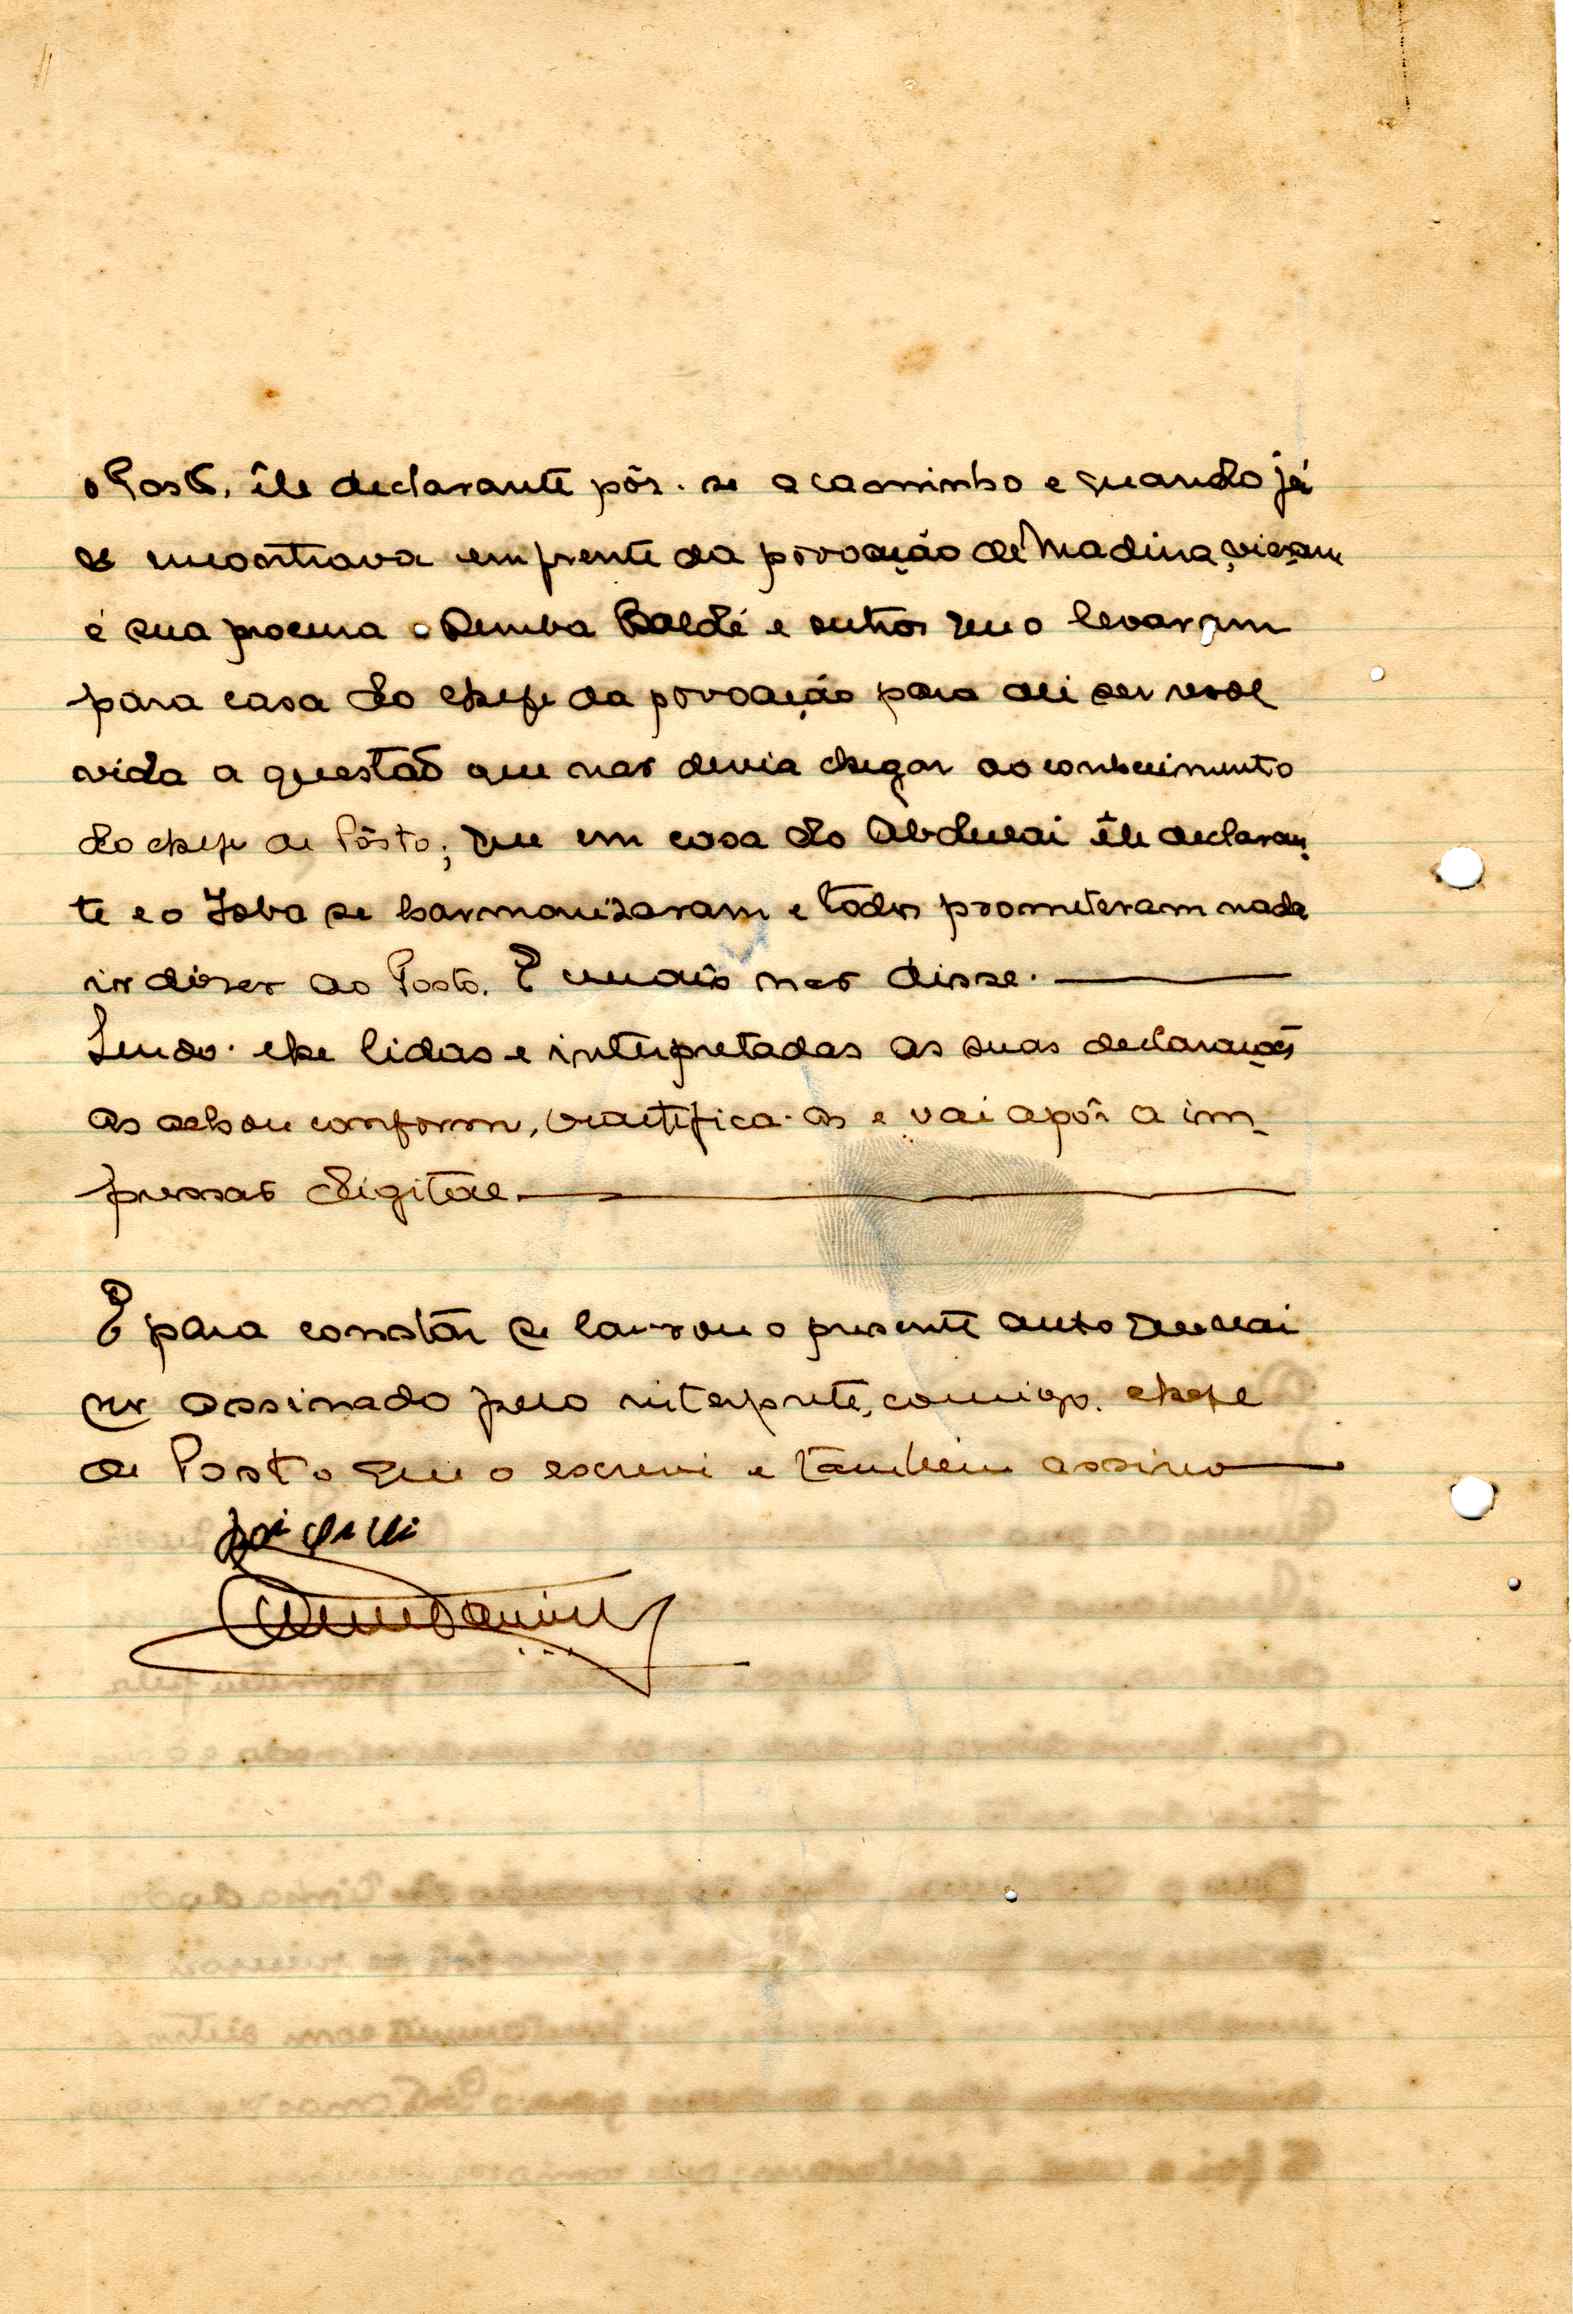 o Posto, êle declarante pôs-se a caminho e quando já
se encontrava em frente da povoação de Madina, vieram
é sua procura o Demba Baldé e outros que o levaram
para casa do chefe da povoação para ali ser resol
vida a questão que não devia chegar ao conhecimento
do chefe de Pôsto; que em casa do Abdulai êle declaran
te e o Joba se harmonizaram e todos prometeram nada
ir dizer ao Posto. E mais não disse.
Sendo-lhe lidas e interpretadas as suas declarações
as achou conforme, ractifica-as e vai apôr a im_
pressão digital.
E para constár se lavrou o presente auto que vai
ser assinado pelo interprete, comigo, chefe
de Posto que o escrevi e também assino